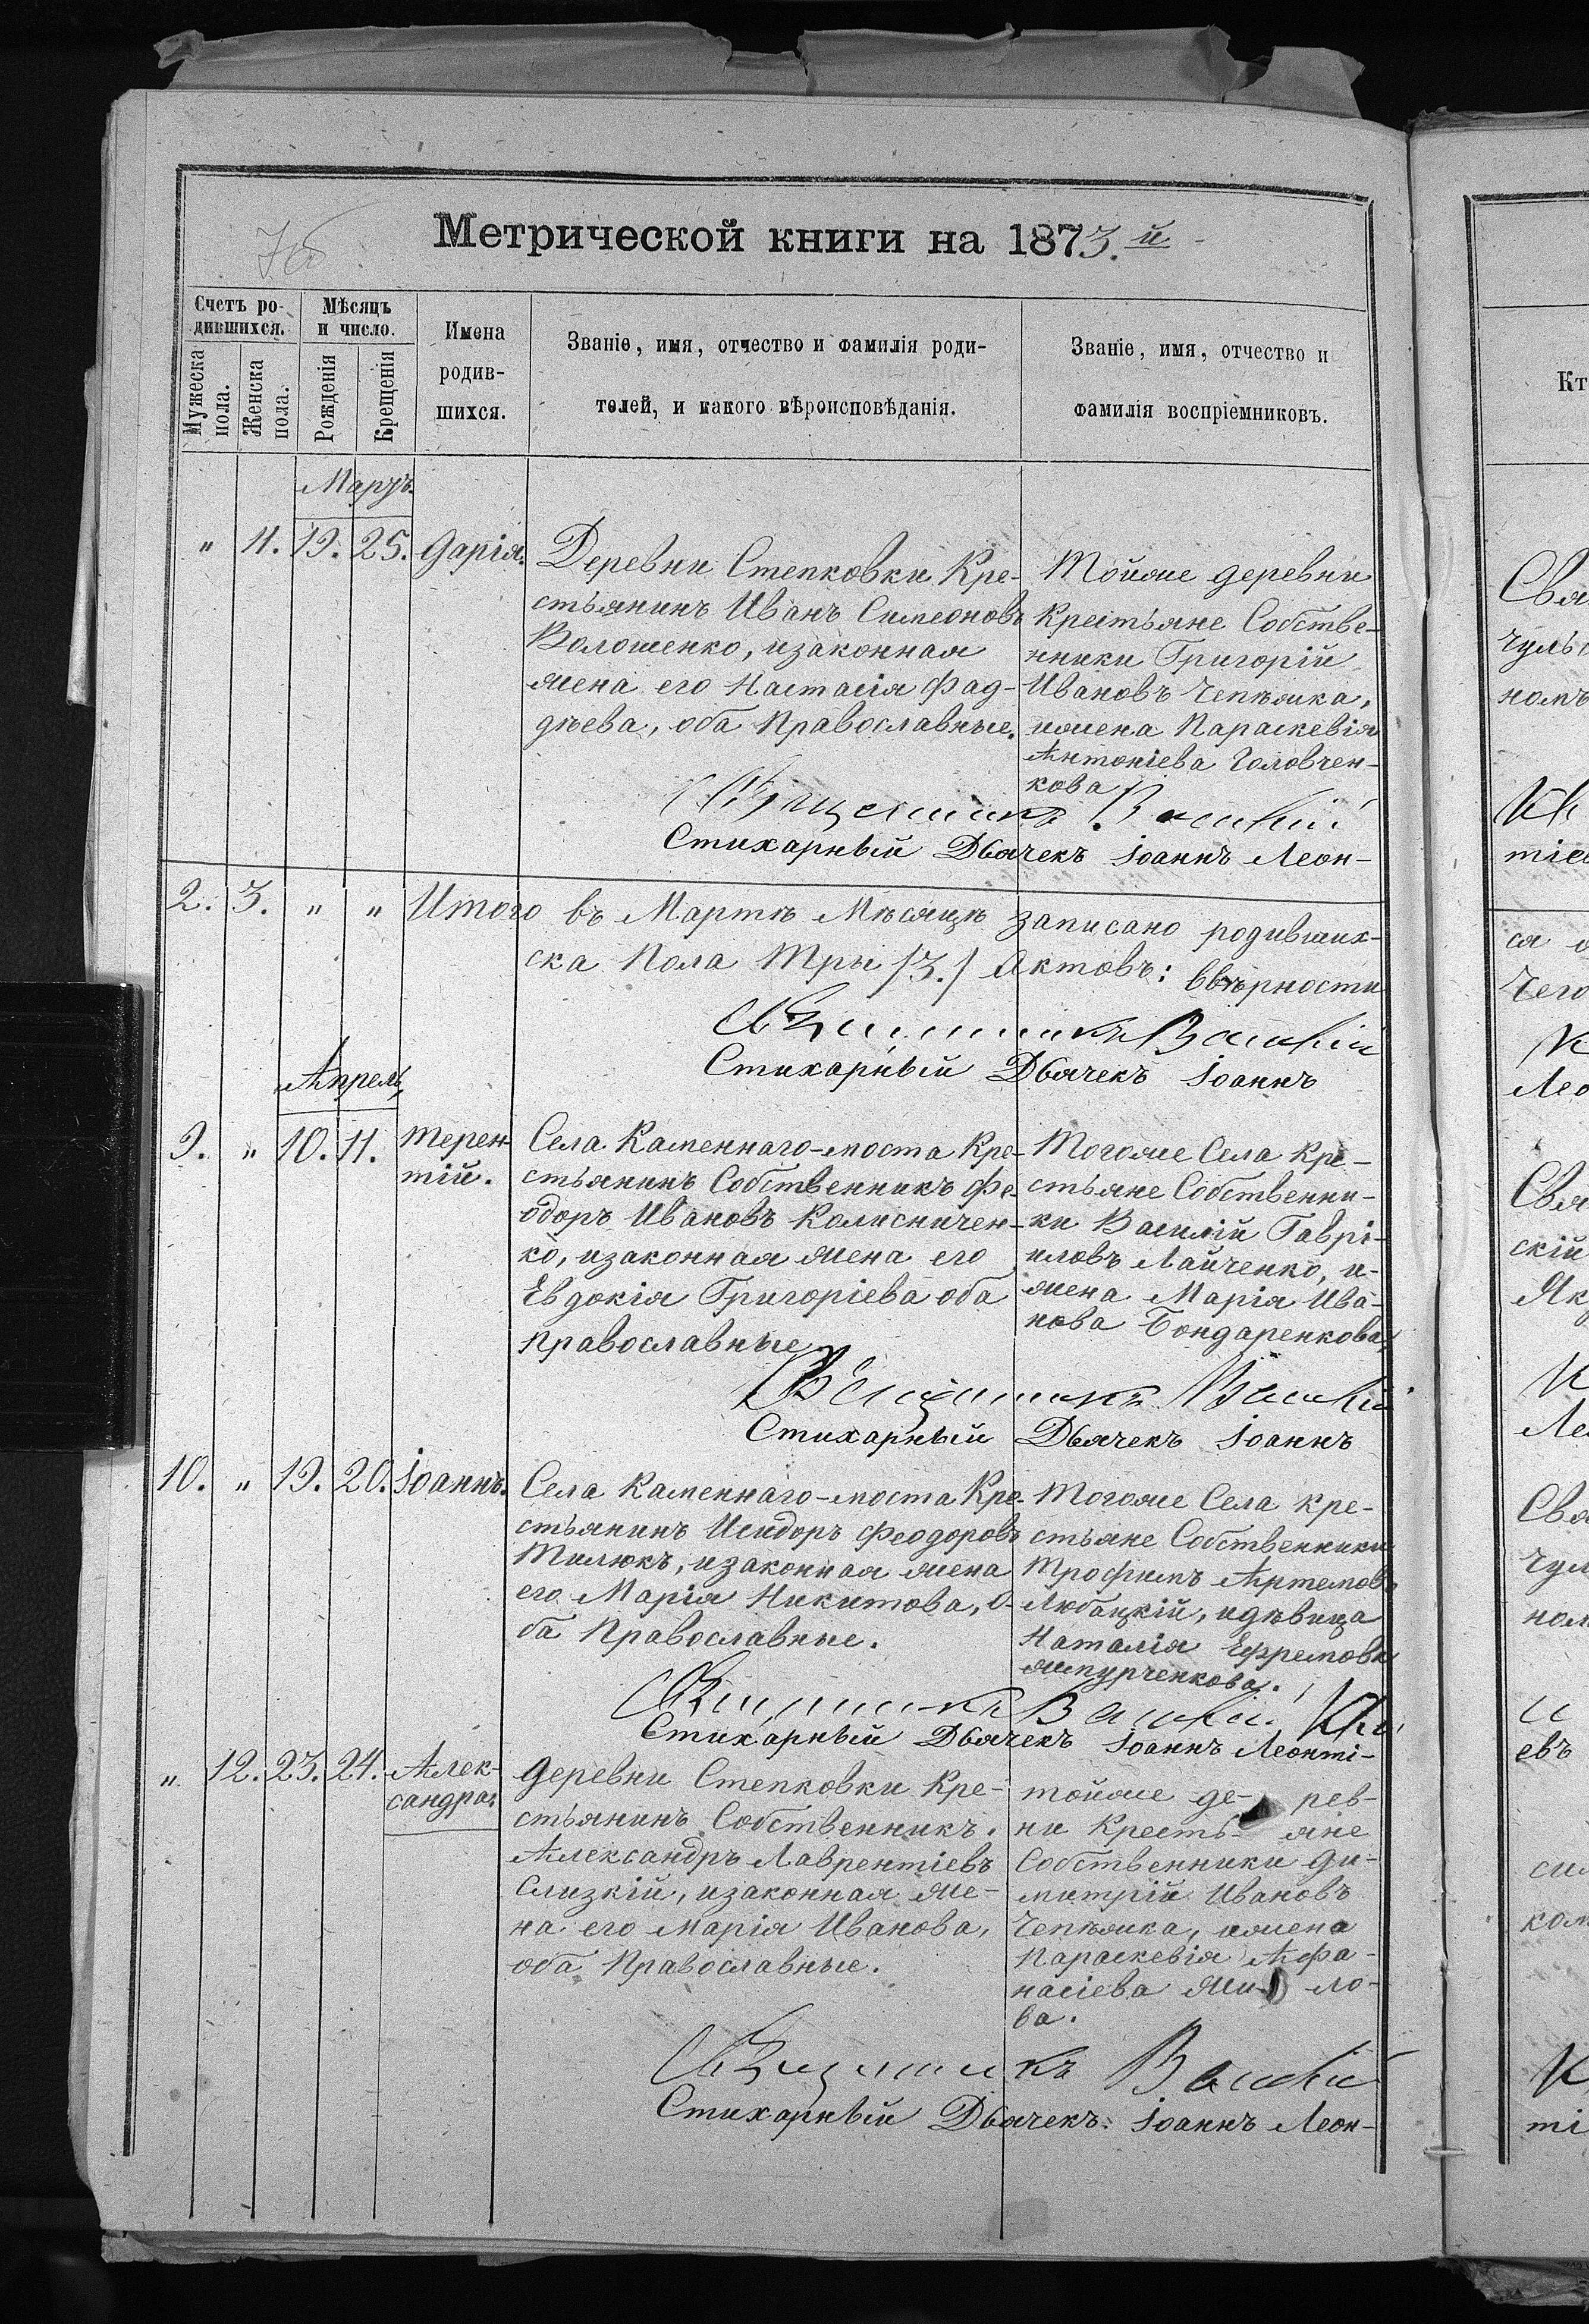 Метрической книги на 1873.й
Счетъ ро-
дившихся.
Мужеска
пола.
Женска
пола.
Мѣсяцъ
и число.
Рожденія
Крещенія
Имена
родив-
шихся.
Званіе, имя, отчество и фамилія роди-
телей, и какого вѣроисповѣданія.
Званіе, имя, отчество и
фамилія воспріемниковъ.
Мартъ
" 11. 19. 25. Дарія.
Деревни Степковки Кре-
стьянинъ Иванъ Симеоновъ
Волошенко, изаконная
жена его Настасія Фад-
дѣева, оба Православные.
Тойже деревни
Крестьяне Собстве-
нники Григорій
Ивановъ Чепѣжка,
ижена Параскевія
Антоніева Головчен-
кова
Священникъ Василій
Стихарный Дьячекъ Іоаннъ Леон-
2. 3. " " Итого въ Мартѣ Мѣсяцѣ записано родивших-
ска Пола Три /3./ Актовъ: ввѣрности
Священникъ Василій
Стихарный Дьячекъ Іоаннъ
Апрель
9. " 10. 11. Терен-
тій.
Села Каменнаго-моста Кре-
стьянинъ Собственникъ Фе-
одоръ Ивановъ Колисничен-
ко, изаконная жена его
Евдокія Григоріева оба
православные
Тогоже Села Кре-
стьяне Собственни-
ки Василій Гаврі-
иловъ Лайченко, и-
жена Марія Ива-
нова Бондаренкова,
Священникъ Василій
Стихарный Дьячекъ Іоаннъ
10. " 19. 20. Іоаннъ.
Села Каменнаго-моста Кре-
стьянинъ Исидоръ Феодоровъ
Тилюкъ, изаконная жена
его Марія Никитова, о-
ба Православные.
Тогоже Села кре-
стьяне Собственники
Трофимъ Артемовъ
Любацкій, идѣвица
Наталія Ефремова
Ямпурченкова.
Священникъ Василій
Стихарный Дьячекъ Іоаннъ Леонті-
" 12. 23. 24. Алек-
сандра.
Деревни Степковки Кре-
стьянинъ Собственникъ.
Александръ Лаврентіевъ
Слизкій, изаконная же-
на его Марія Иванова,
оба Православные.
тойже де- рев-
ни Кресть- яне
Собственники Ди-
митрій Ивановъ
Чепѣжка, ижена
Параскевія Афа-
насіева Жи- ло-
ва.
Священникъ Василій
Стихарный Дьячекъ: Іоаннъ Леон-
Кт
Свя
чуль
номъ
тіе
ся
Чего
Лео
Свя
скій
Як
Ле
Свя
чул
ном
евъ
ком
ті